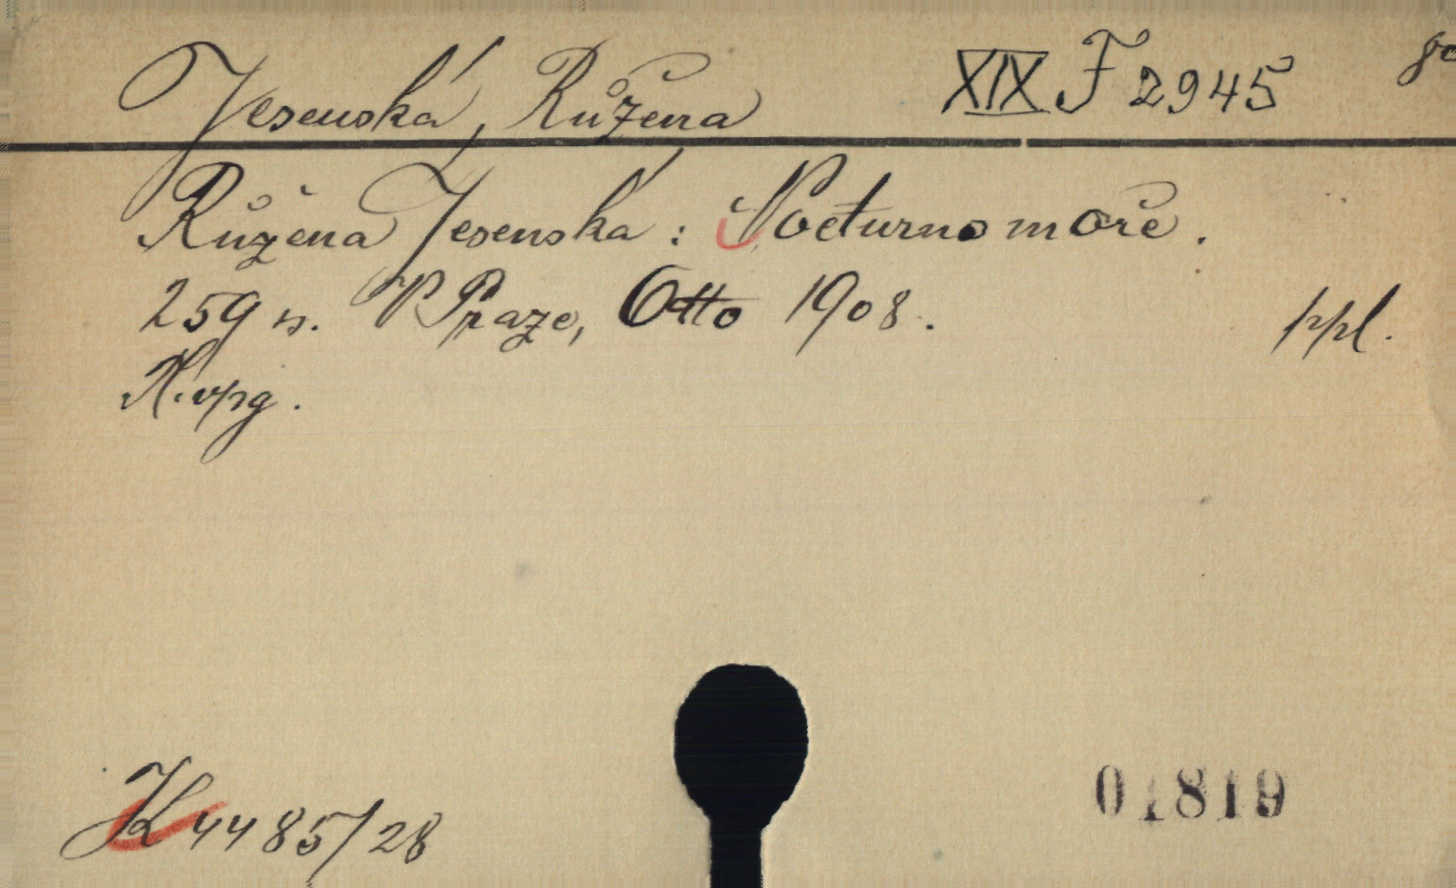 Jesenská, Růžena XIX F 2945
Růžena Jesenská: Nocturno moře.
259 s. V Praze, Otto 1908. ppl.
K 4485/28
01819